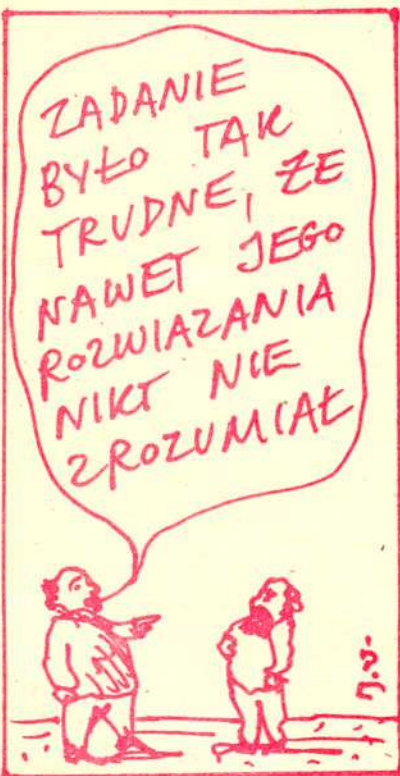 ZADANIE
BYŁO TAK
TRUDNE, ŻE
NAWET JEGO
ROZWIAZANIA
NIKT NIE
ZROZUMIAŁ